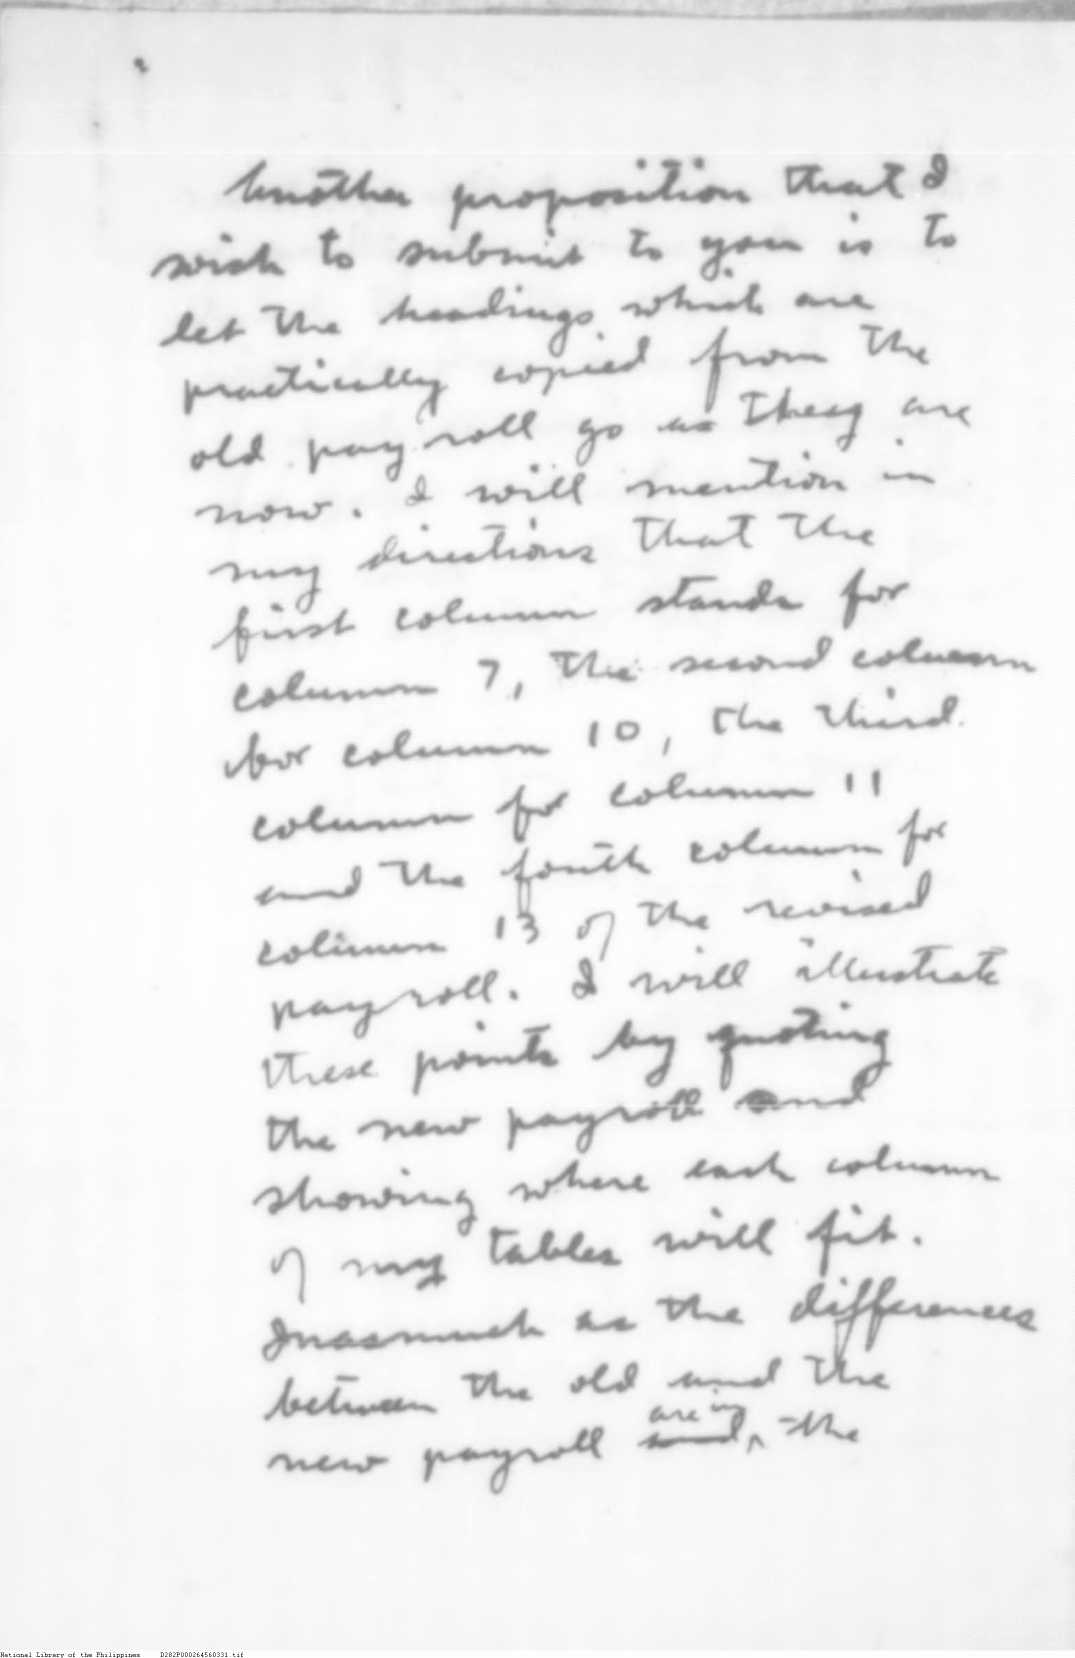 Another proposition that I
wish to submit to you is to
let the headings which are
practically copied from the
old payroll go as they are
now. I will mention in
my directions that the
first column stands for
column 7, the second column
for column 10, the third
column for column 11
and the fouth column for
column 13 of the revised
payroll. I will illustrate
these points by quoting
the new payroll and
showing where each column
of my tables will fit.
Inasmuch as the differences
between the old and the
are in
new payroll and, the
National Library of the Philippines D282P000264560331.tif